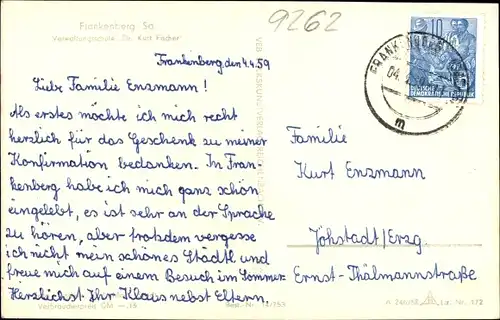 Frankenberg Sa.
Verwaltungsschule „Dr. Kurt Fischer"
9262
10
DEUTSCHE
DEMOKRATISCHE REPUBLIK
FRANKENBERG
04.
m
Frankenberg den 4.4.59
Liebe Familie Enzmann!
Als erstes möchte ich mich recht
herzlich für das Geschenk zu meiner
Konfirmation bedanken. In Fran-
kenberg habe ich mich ganz schön
eingelebt, es ist sehr an der Sprache
zu hören, aber trotzdem vergesse
ich nicht mein schönes Städtl und
freue mich auf einem Besuch im Sommer.
Herzlichst Ihr Klaus nebst Eltern.
Familie
Kurt Enzmann
Jöhstadt/Erzg
Ernst-Thälmannstraße
Verbraucherpreis DM —,15
Best.-Nr.
Lp. Nr. 172